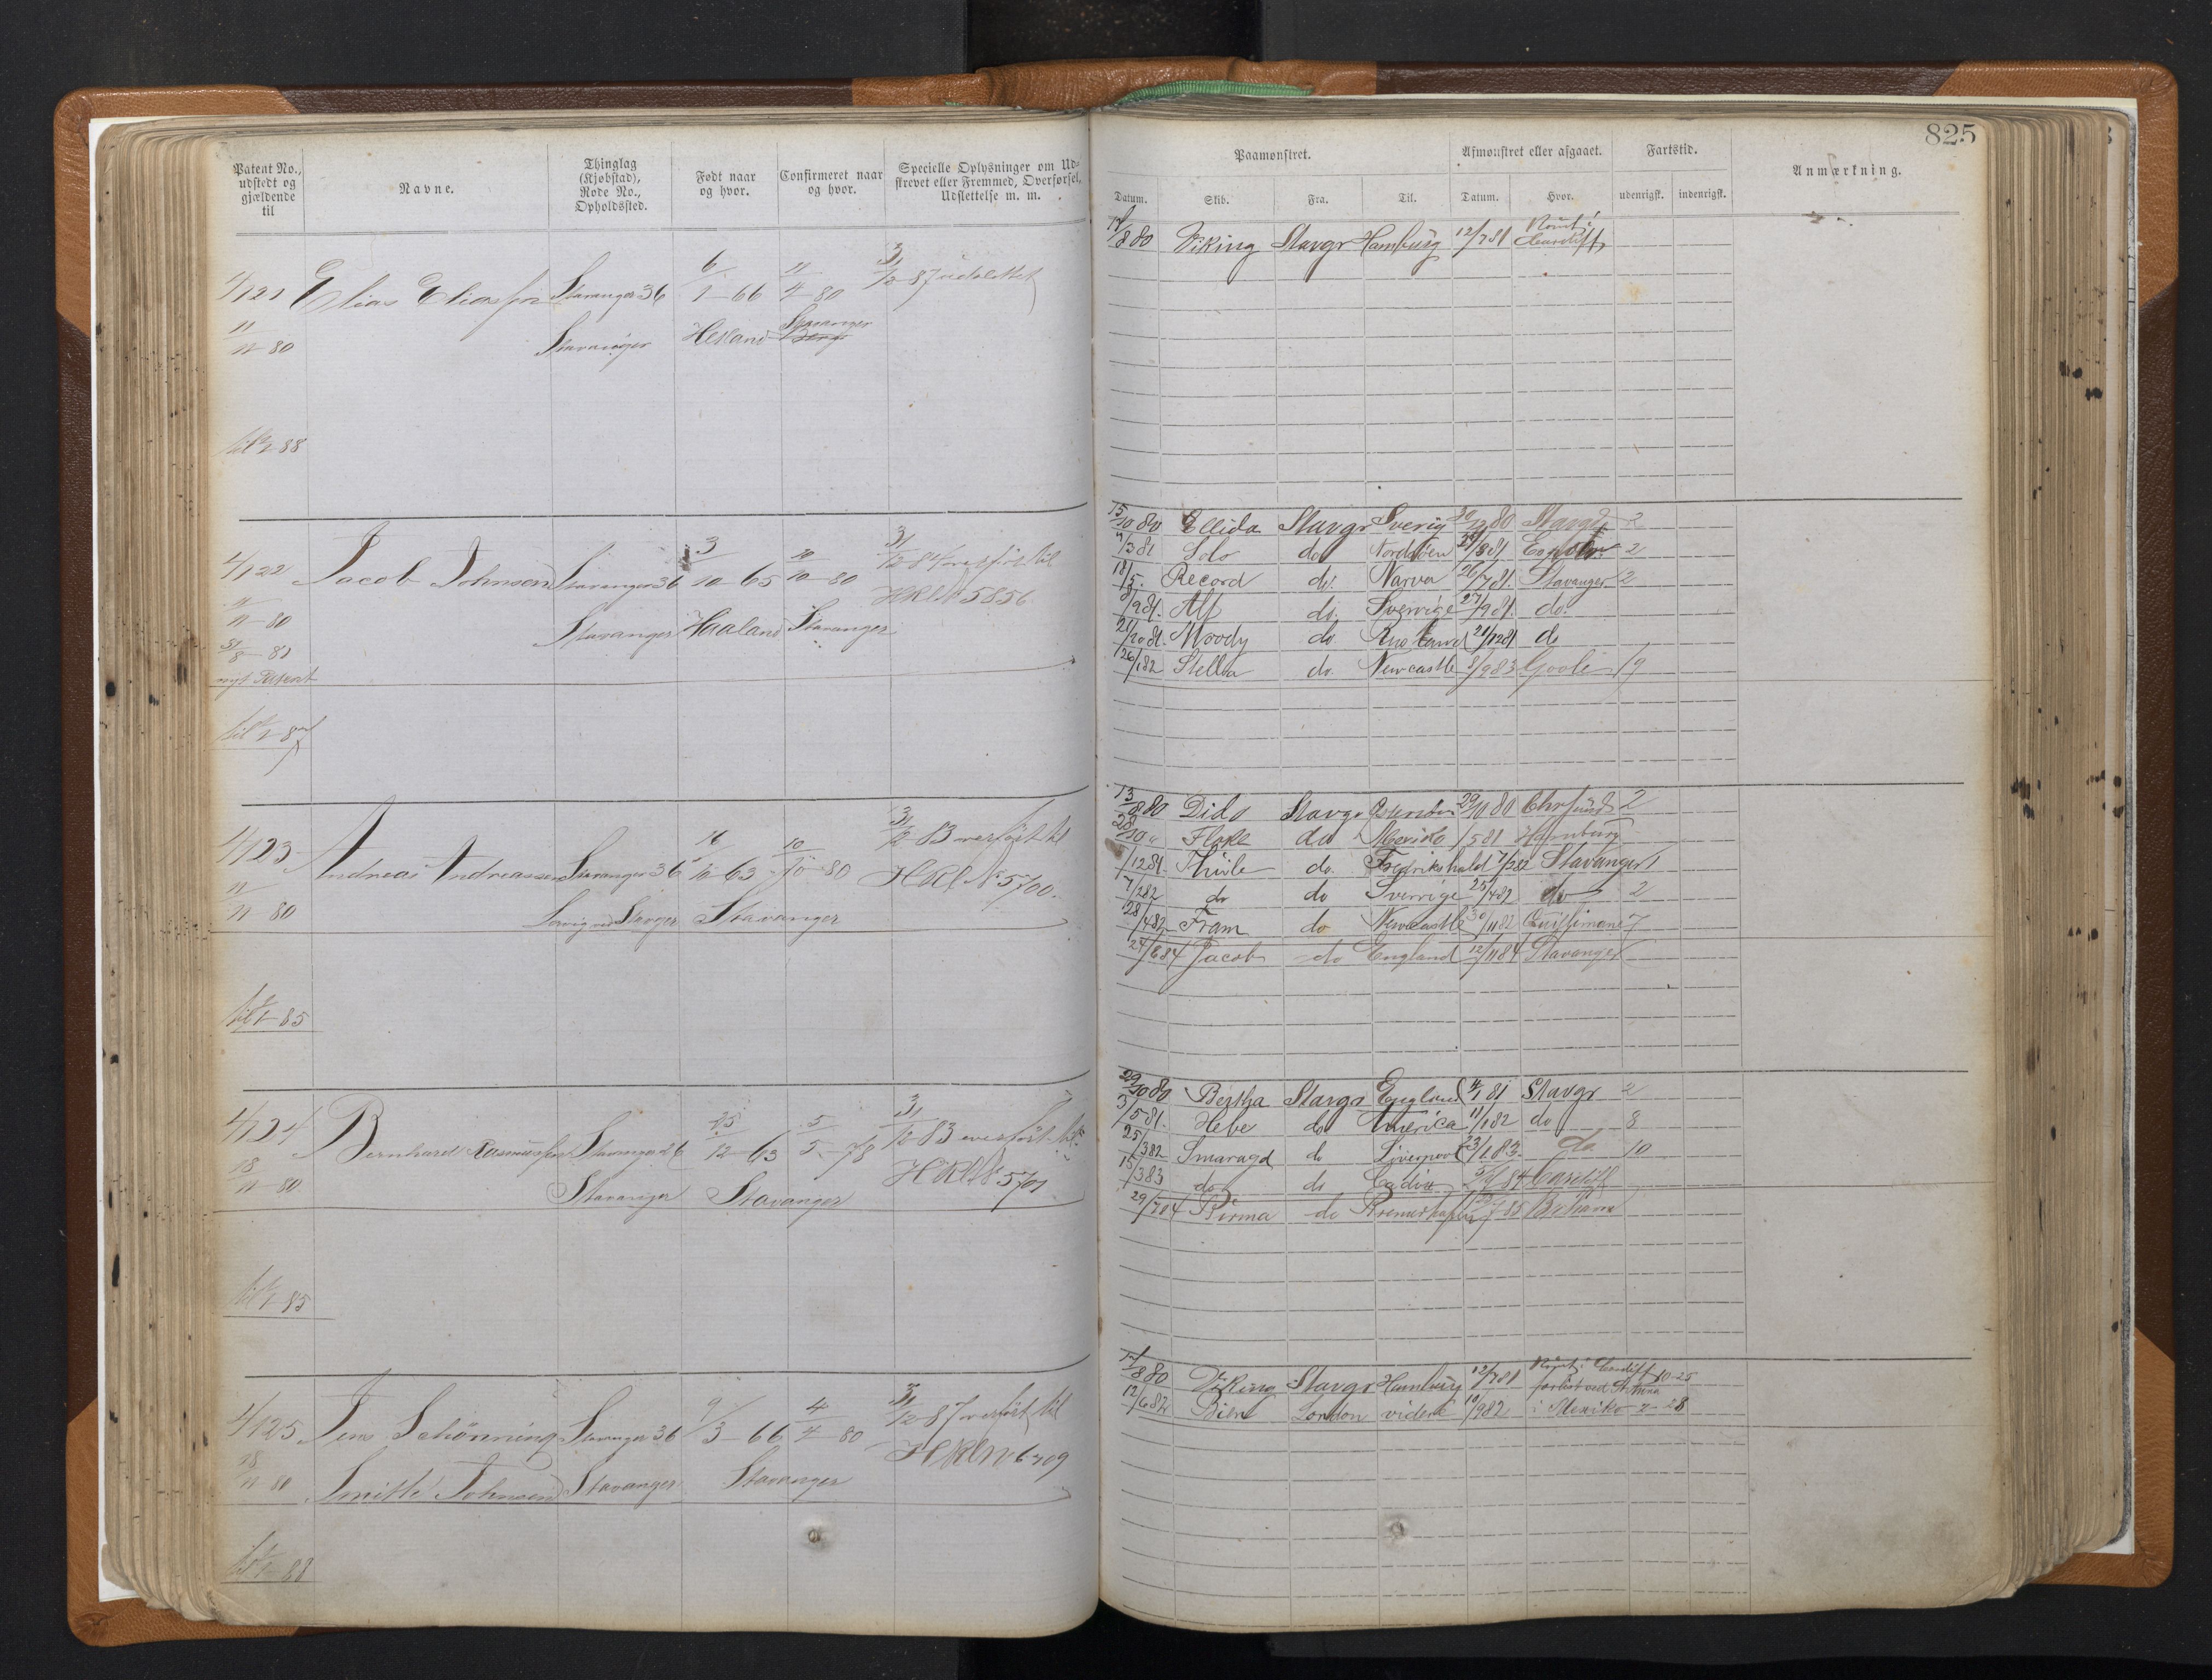 Patent No., udstedt og gjældende til
Navne.
Thinglag (Kjøbstad), Rode No., Opholdssted.
Født naar og hvor.
Confirmeret naar og hvor.
Specielle Oplysninger om Udstrevet eller Fremmed, Overførsel, Udslettelse m. m.
4121 Elias Eliassen Stavanger 36 6/1-66 11/4-80 31/12-87 udslettet
11/11 80 Stavanger Hetland Stavanger
til 1/1-88
4122 Jacob Johnsen Stavanger 36 3/10-65 10/10-80 31/12-84 overført til
HKl No 5856
11/11-80 Stavanger Haaland Stavanger
31/8-81
nyt Patent
til 1/1-87
4123 Andreas Andreassen Stavanger 36 16/10-63 10/10-80 31/12-83 overført til
HKl No 5700.
11/11 80 Stavanger
til 1/1-85
4124 Bernhard Rasmussen Stavanger 26 25/12-63 5/5-78 31/12 83 overført til
HKl No 5701
18/11-80 Stavanger Stavanger
til 1/1-85
4125 Jens Schönning Stavanger 36 9/3-66 4/4-80 31/12-87 overført til
HKl No 6709
18/11 80 Smitt Johnsen Stavanger Stavanger
til 1/1-88
825
Paamønstret.
Afmønstret eller afgaaet.
Fartstid.
Anmærkning.
Datum. Skib. Fra. Til. Datum. Hvor. udenrigsk. indenrigsk.
17/8 80 Viking Stavgr Hamburg 12/7 81 Rømt i Cardiff
15/10 80 Ellida Stavgr Sverig 30/12 80 Stavgr 2
7/3 81 Solo do Nordsøen 25/8 81 2
18/5. Record do. Narva 26/7 81. Stavanger 2
8/9 81. Alf do. Sverrige 27/9 81. do.
21/10 81. Moody do. England 21/12 81 do
26/1 82 Stella do. Newcastle 8/9 83 Goole 19
13/8 80 Dido Stavgr 29/10 80 Chrsund 2
28/10 " Flake do Mexiko /5 81 Hamburg
/12 81. Thule do. Fredrikshald 7/2 82 Stavanger 1
7/2 82 do do Sverrige 25/4 82 do 2
28/4 82 Fram do Newcastle 30/11 82 Quillimane 7
24/6 84 Jacob do England 12/11 84 Stavanger
29/10 80 Bertha Stavgr England 4/1 81 Stavgr 2
3/5 81. Hebe do America 11/1 82 do 8
25/3 82 Smaragd do Liverpool 23/1 83 do. 10
15/3 83 do do Cadix 84 Cardiff
29/7 84 Birma do Bremerhafen 85
17/8 80 Viking Stavgr Hamburg 12/7 81 Rømt i Cardiff 10-25
12/6 82 Bien London videre 10/9 82 forlist ved
i Mexiko